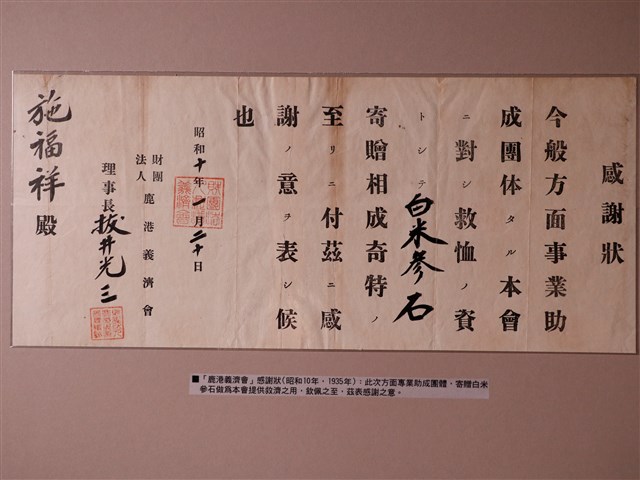 感謝狀
今般方面事業助
成團体タル本會
ニ對シ救恤ノ資
トシテ白米參石
寄贈相成奇特ノ
至リニ付茲ニ感
謝ノ意ヲ表シ候
也
昭和十年一月二十日
財團法人鹿港義濟會
理事長拔井光三
施福祥殿
■「鹿港義濟會」感謝狀(昭和10年,1935年):此次方面專業助成團體,寄贈白米
參石做為本會提供救濟之用,欽佩之至,茲表感謝之意。